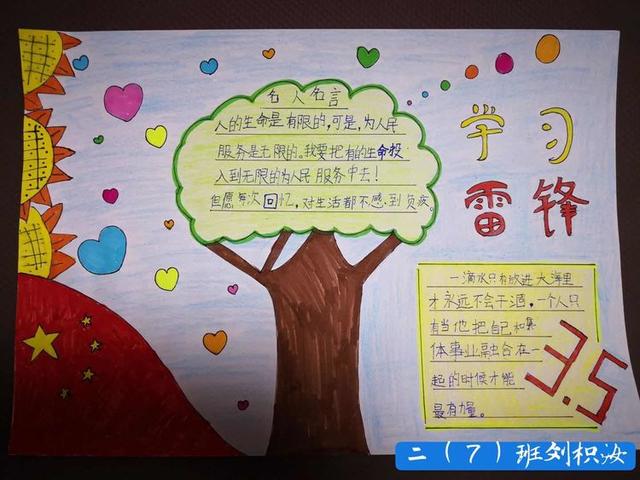 名人名言
人的生命是有限的,可是,为人民
服务是无限的。我要把有的生命投
入到无限的为人民服务中去!
但愿每次回忆,对生活都不感到负疚。
学习
雷锋
一滴水只有放进大海里
才永远不会干涸,一个人只
有当他把自己和集
体事业融合在一
起的时候才能
最有力量。
3.5
二(7)班刘枳汝